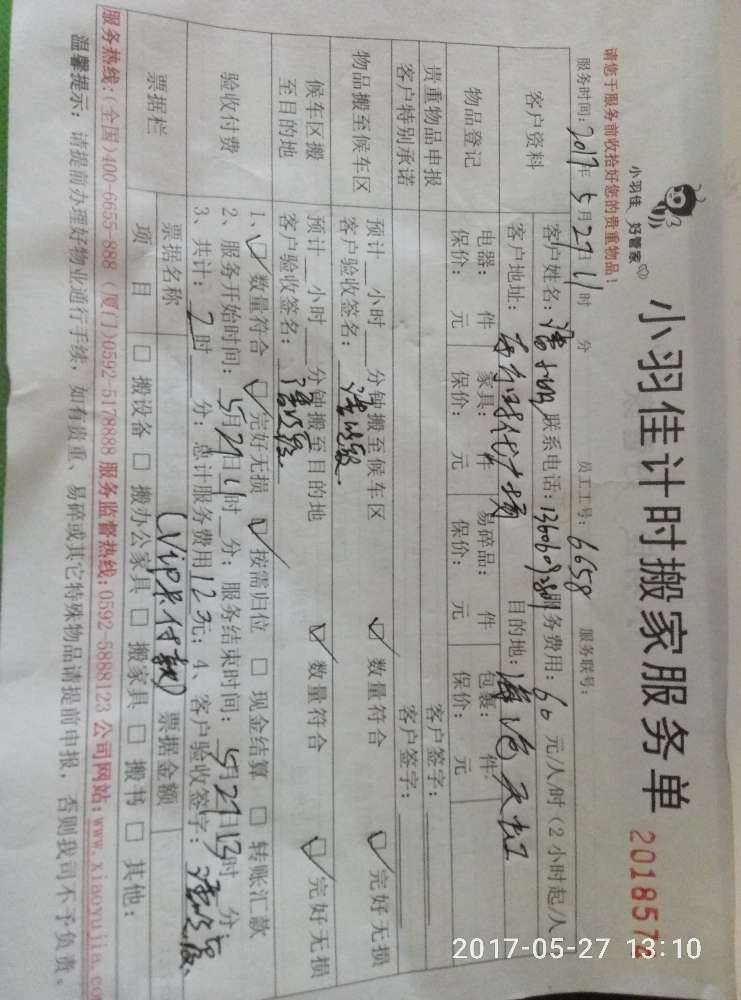 小羽佳计时搬家服务单
小羽佳 好管家
请您于服务前收拾好您的贵重物品！
服务时间：2017年5月27日11时 分 员工工号：6658 服务联号：
客户资料 客户姓名： 联系电话： 服务费用：60元/人/时（2小时起/人
客户地址：时代广场 目的地：
物品登记 电器： 件 家具： 件 易碎品： 件 包裹： 件
保价： 元 保价： 元 保价： 元 保价： 元
贵重物品申报 客户签字：
客户特别承诺 客户签字：
物品搬至候车区 预计 小时 分钟搬至候车区 ☑ 数量符合 ☑ 完好无损
客户验收签名：
候车区搬至目的地 预计 小时 分钟搬至目的地 ☑ 数量符合 ☑ 完好无损
客户验收签名：
验收付费 1、☑ 数量符合 ☑ 完好无损 ☑ 按需归位 □ 现金结算 □ 转账汇款
2、服务开始时间：5月27日11时 分；服务结束时间：5月27日13时 分
3、共计：2时 分；总计服务费用 元；4、客户验收签字：
(VIP卡付款)
票据栏 票据名称 票据金额
项 目 □ 搬设备 □ 搬办公家具 □ 搬家具 □ 搬书 □ 其他：
服务热线：(全国)400-6655-888 (厦门)0592-5178888 服务监督热线：0592-5888123 公司网站：www.xiaoyujia.co
温馨提示：请提前办理好物业通行手续，如有贵重、易碎或其它特殊物品请提前申报，否则我司不予负责。
2017-05-27 13:10